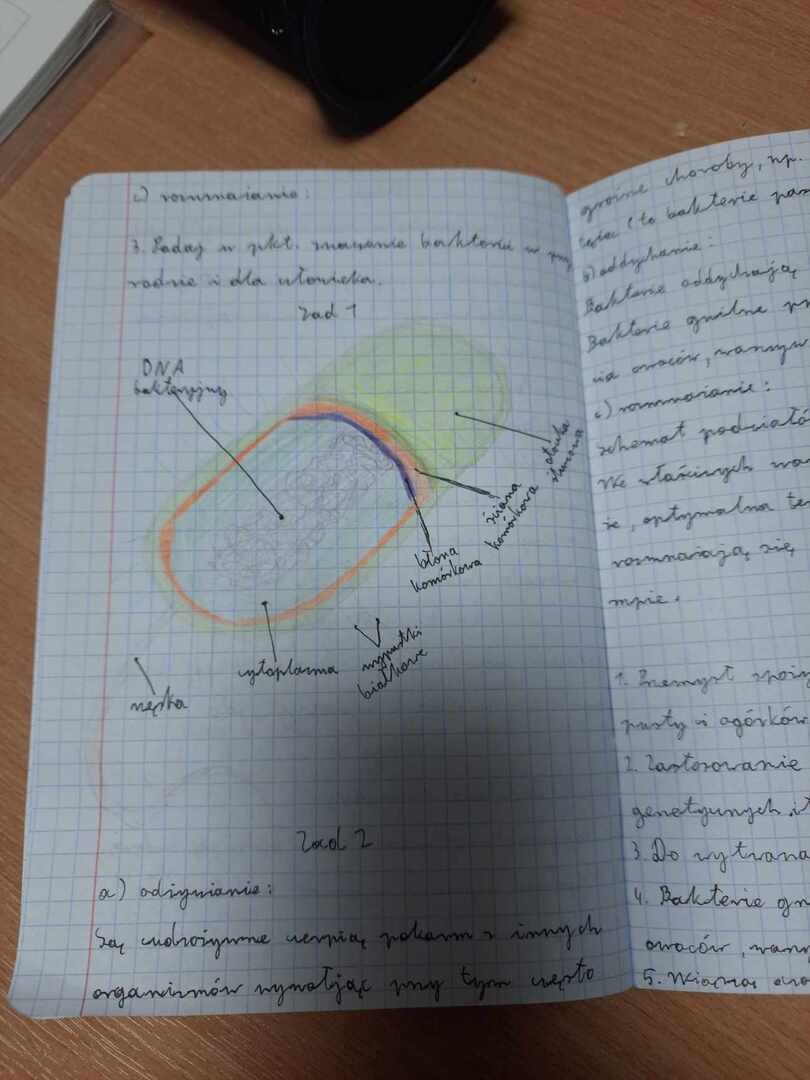 c) rozmnażanie:
3. Podaj w pkt. znaczenie bakterii w przy
rodzie i dla człowieka.
Zad 1
DNA
bakteryjny
otoczka
śluzowa
ściana
komórkowa
błona
komórkowa
wypustki
białkowe
cytoplazma
rzęska
Zad 2
a) odżywianie:
Są cudzożywne czerpią pokarm z innych
organizmów wywołując przy tym często
groźne choroby, np.
(to bakterie pas
b) oddychanie:
Bakterie oddychają
Bakterie gnilne pr
nia owoców, warzyw
c) rozmnażanie:
schemat podziałó
We właściwych wa
ie, optymalna te
rozmnażają się
mpie.
1. Przemysł spoży
pusty i ogórków
2. Zastosowanie
genetycznych, it
3. Do wytwarza
4. Bakterie gn
owoców, warzy
5. Wiążą